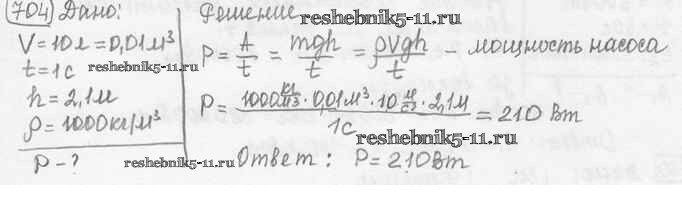 704 Дано:
V=10л=0,01м³
t=1с
h=2,1м
ρ=1000кг/м³
P-?
Решение
reshebnik5-11.ru.
P=A/t=mgh/t=ρVgh/t - мощность насоса
reshebnik5-11.ru
P=1000 кг/м³·0,01м³·10 м/с²·2,1м/1с=210 Вт
reshebnik5-11.ru
reshebnik5-11.ru
Ответ: P=210Вт